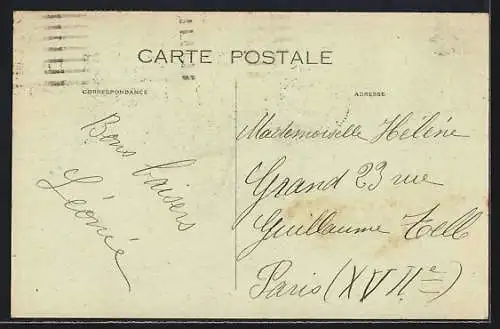 CARTE POSTALE
CORRESPONDANCE
ADRESSE
Bons baisers
Léonie
Mademoiselle Hélène
Grand 23 rue
Guillaume Tell
Paris (XVIIe)